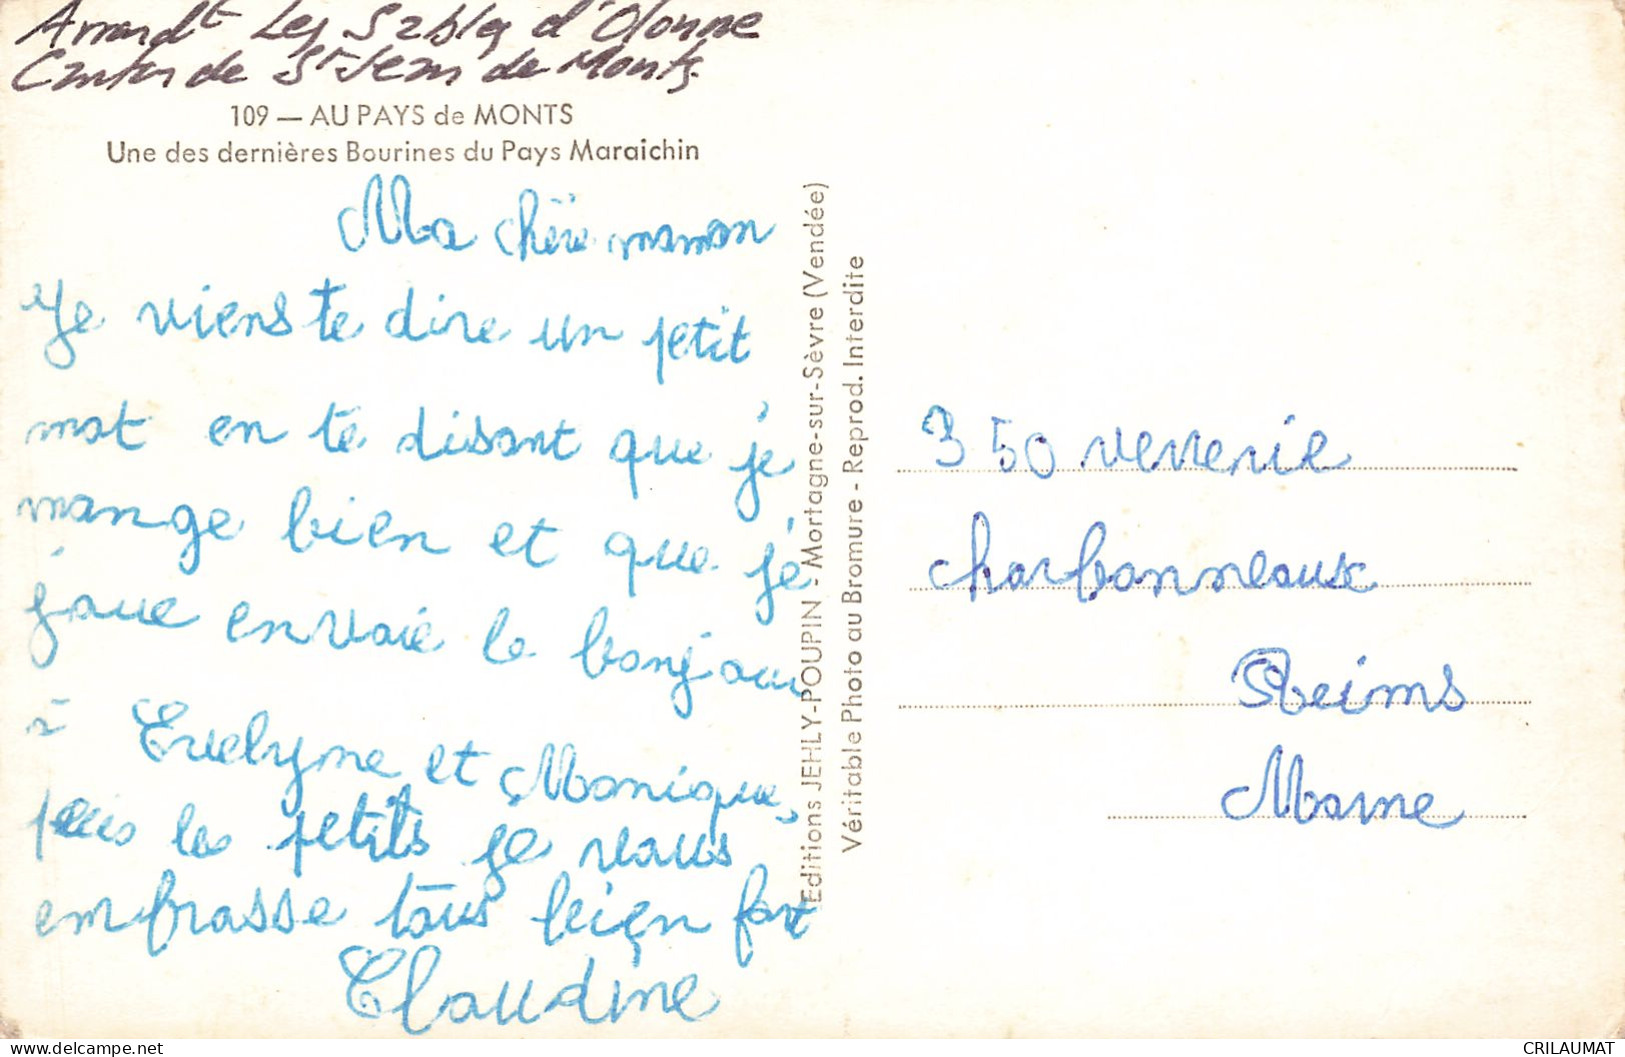 Arrondt Les Sables d'Olonne
Canton de St Jean de Monts.
109 — AU PAYS de MONTS
Une des dernières Bourines du Pays Maraichin
Ma chère maman
Je viens te dire un petit
mot en te disant que je
mange bien et que je
joue envoie le bonjour
à Evelyne et Monique,
puis les petits je vous
embrasse tous beien fort
Claudine
Editions JEHLY-POUPIN - Mortagne-sur-Sèvre (Vendée)
Véritable Photo au Bromure - Reprod. Interdite
350 verrerie
charbonneaux
Reims
Marne
CRILAUMAT